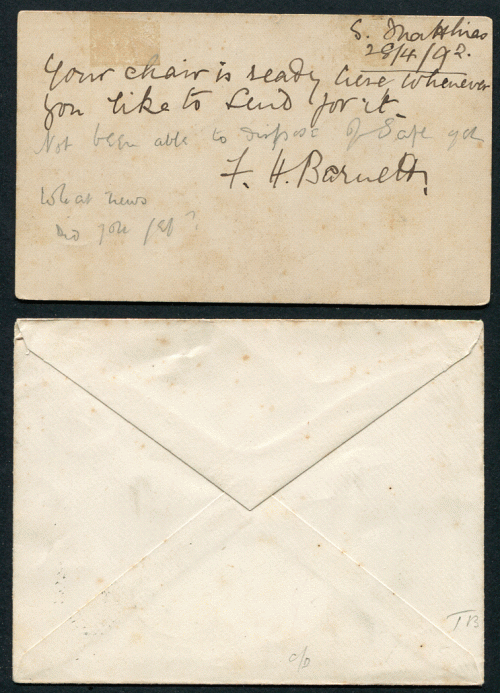 S. Matthias
28/4/92.
Your chair is ready here whenever
you like to send for it.
Not been able to dispose of Safe yet
F. H. Barnett.
What news
did you get?
c/o
TB